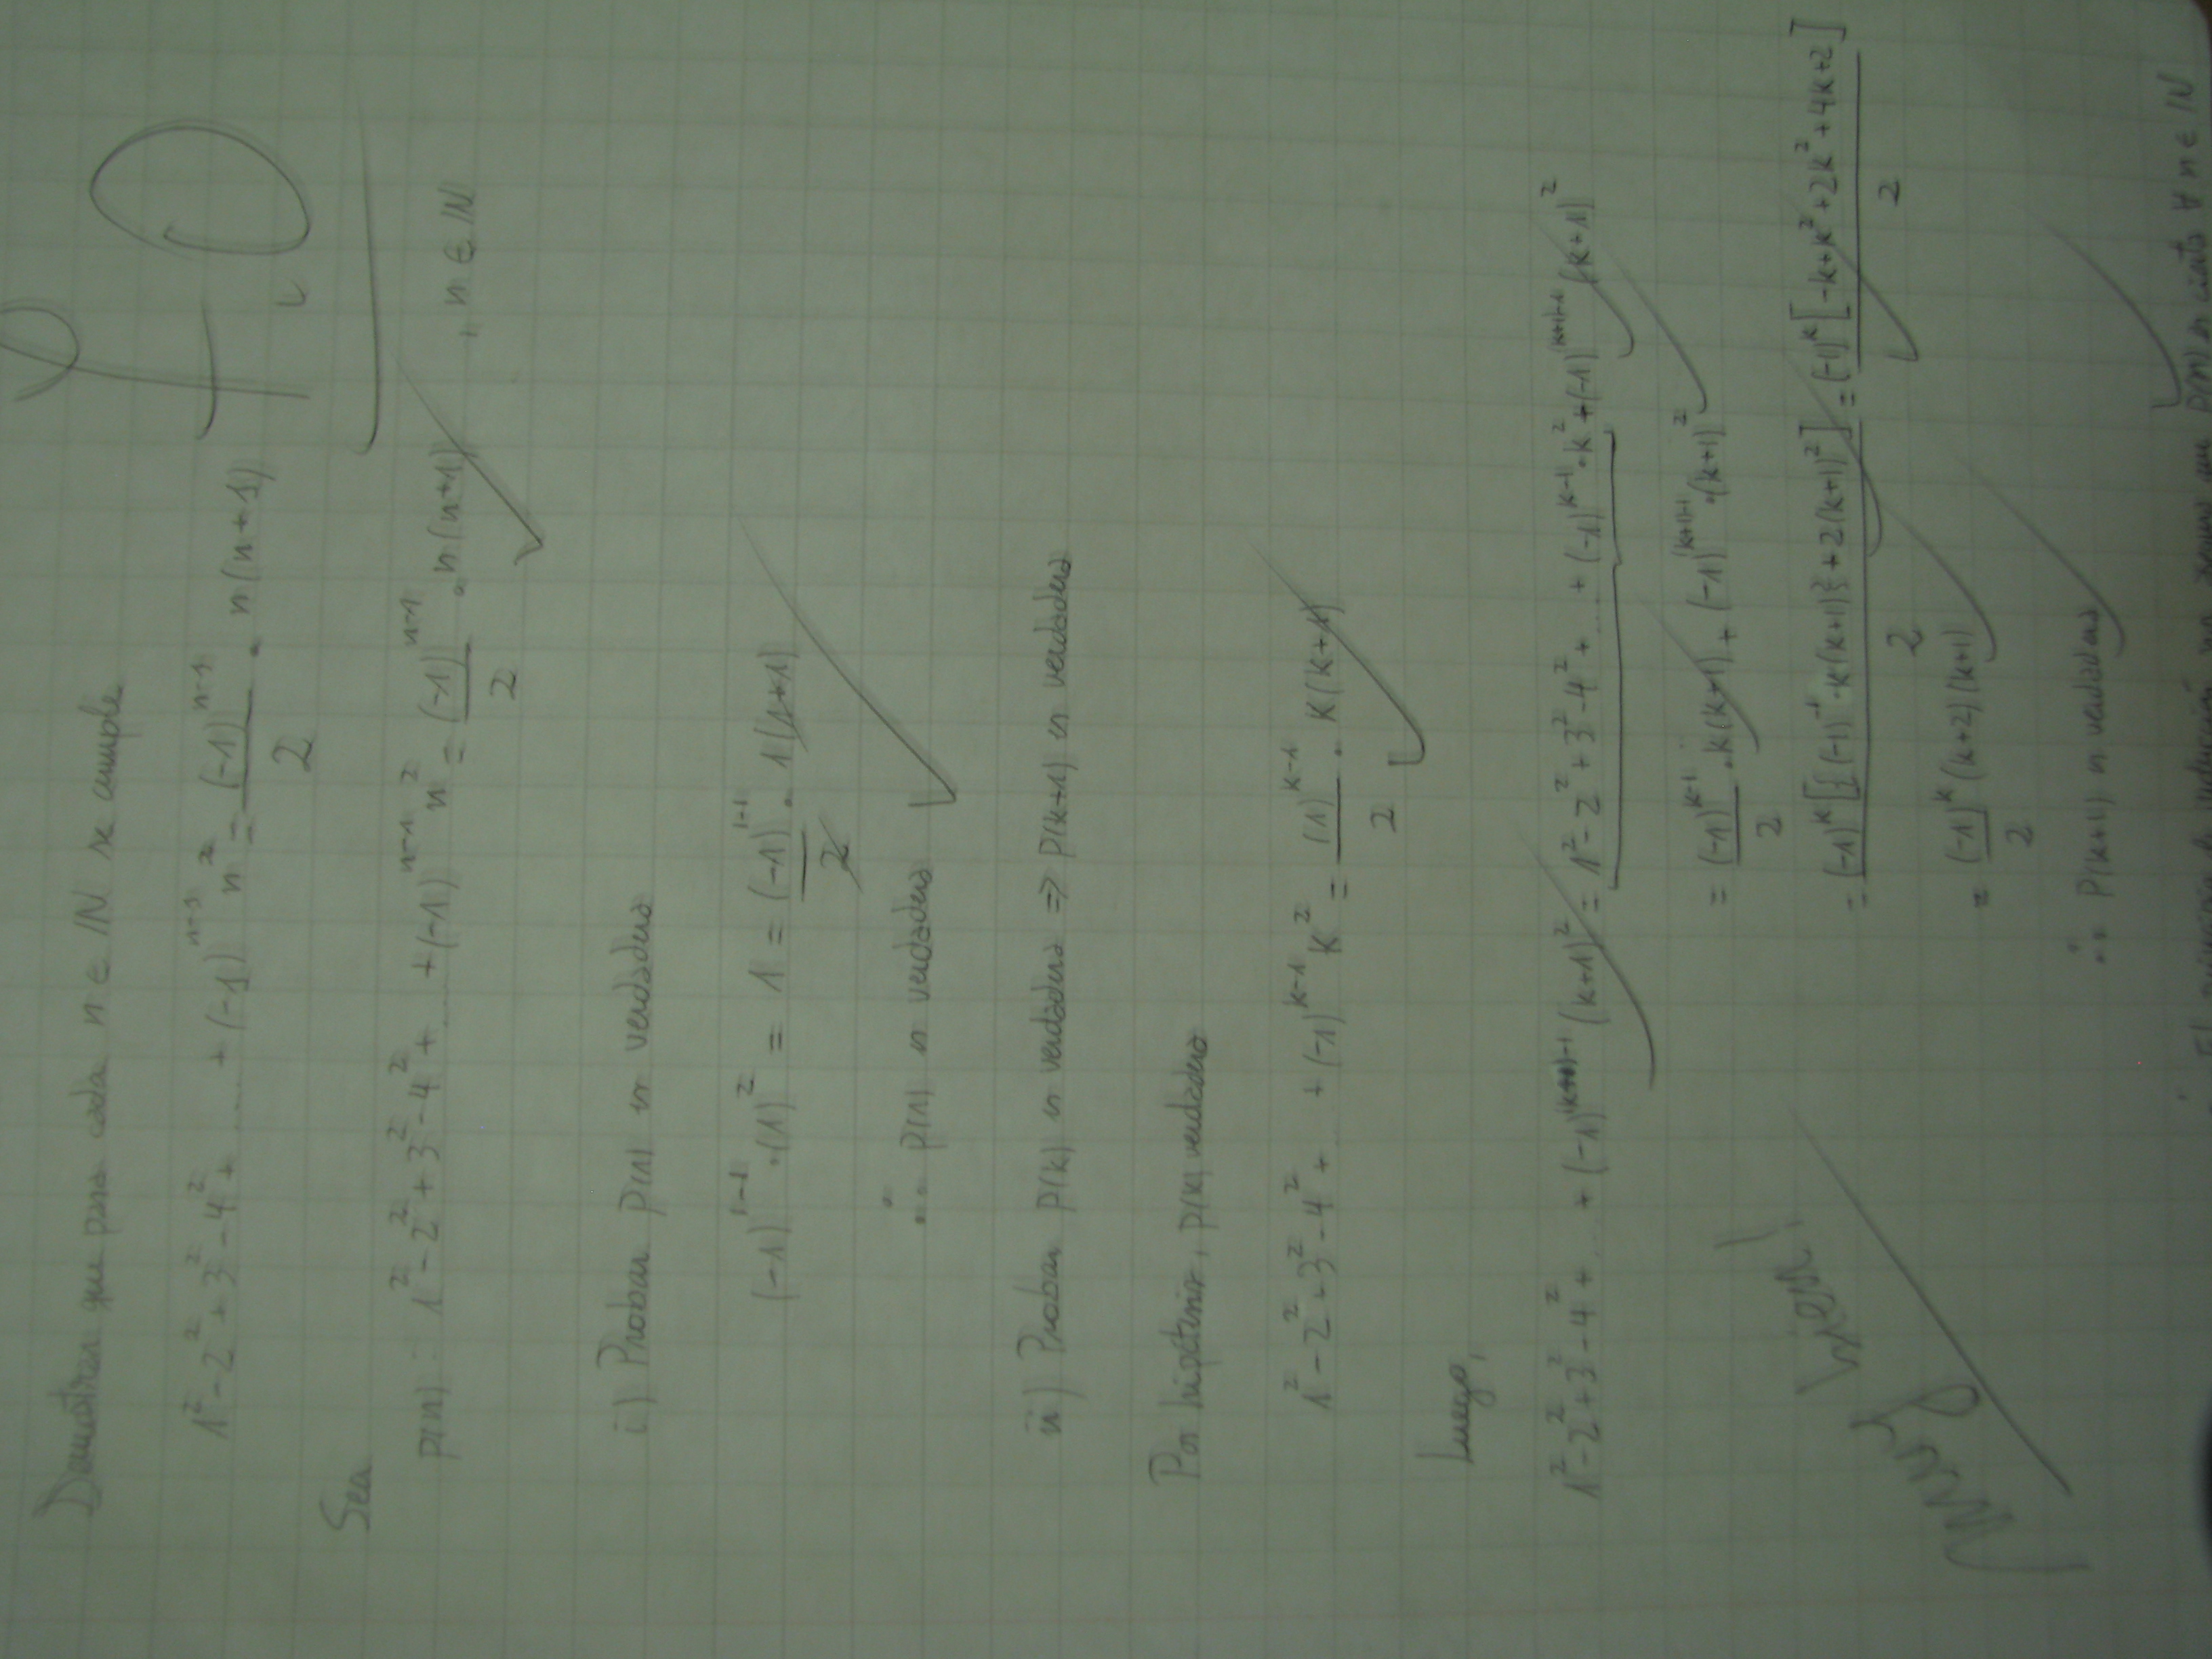 Demostrar que para cada n ∈ IN se cumple
1² - 2² + 3² - 4² + ..... + (-1)ⁿ⁻¹ n² = (-1)ⁿ⁻¹/2 . n(n+1)
7,0
Sea
P(n) : 1² - 2² + 3² - 4² + ..... + (-1)ⁿ⁻¹ n² = (-1)ⁿ⁻¹/2 . n(n+1) , n ∈ IN
i) Probar P(1) es verdadera
(-1)¹⁻¹ . (1)² = 1 = (-1)¹⁻¹/2 . 1(1+1)
∴ P(1) es verdadera
ii) Probar P(k) es verdadera ⇒ P(k+1) es verdadera
Por hipótesis, P(k) verdadera
1² - 2² + 3² - 4² + ... + (-1)ᵏ⁻¹ k² = (1)ᵏ⁻¹/2 . k(k+1)
Luego,
1² - 2² + 3² - 4² + ... + (-1)⁽ᵏ⁺¹⁾⁻¹ (k+1)² = 1² - 2² + 3² - 4² + .... + (-1)ᵏ⁻¹ . k² + (-1)⁽ᵏ⁺¹⁾⁻¹ (k+1)²
= (-1)ᵏ⁻¹/2 . k(k+1) + (-1)⁽ᵏ⁺¹⁾⁻¹ . (k+1)²
= (-1)ᵏ[{(-1)⁻¹ . k(k+1)} + 2(k+1)²]/2 = (-1)ᵏ[-k+k²+2k²+4k+2]/2
= (-1)ᵏ/2 (k+2)(k+1)
∴ P(k+1) es verdadera
Muy bien!
∴ El principio de inducción nos que P(n) es cierta ∀ n ∈ IN